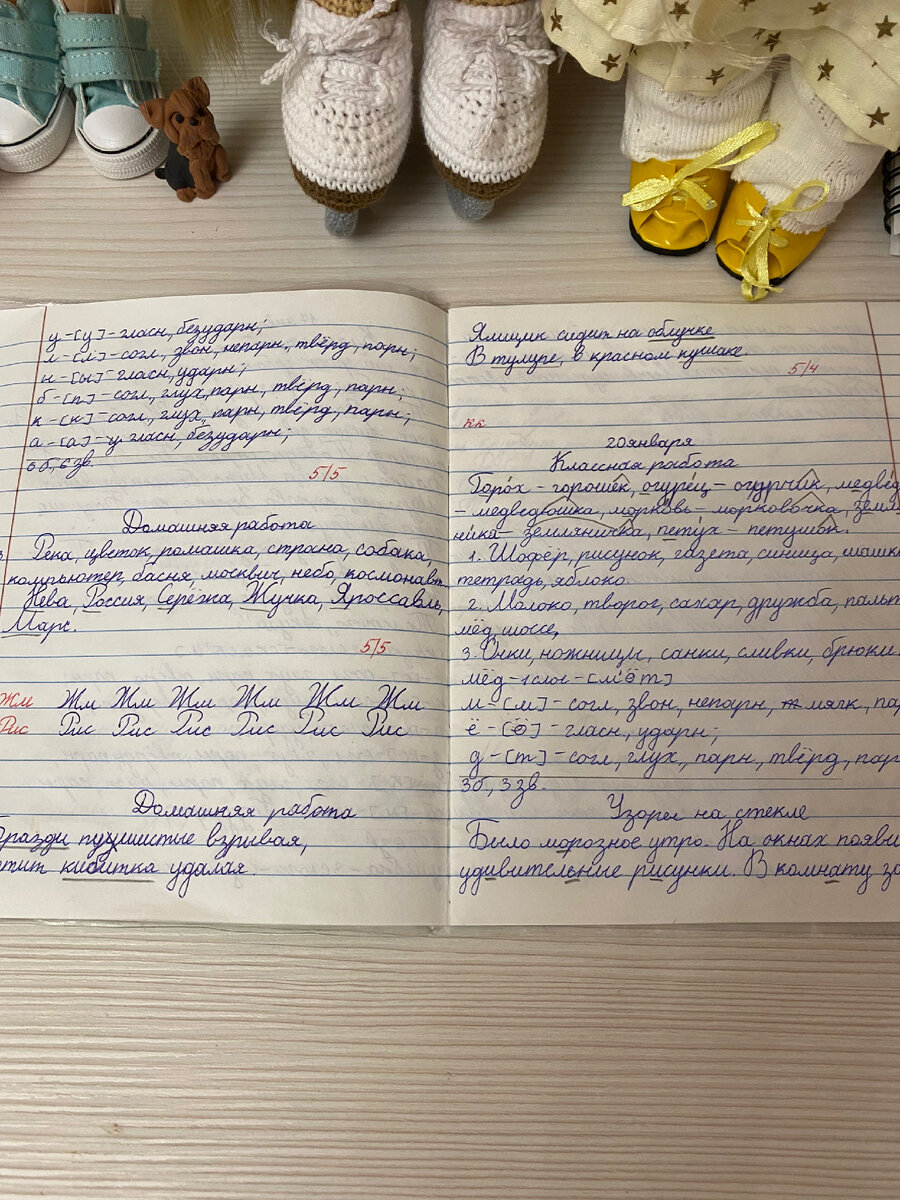 у-[у]-гласн, безударн;
л-[л]-согл, звон, непарн, твёрд, парн;
ы-[ы]-гласн, ударн;
б-[п]-согл, глух, парн, твёрд, парн;
к-[к]-согл, глух, парн, твёрд, парн;
а-[а]-гласн, безударн;
6б, 6 зв.
5/5
Домашняя работа
Река, цветок, ромашка, страна, собака,
компьютер, басня, москвич, небо, космонавт.
Нева, Россия, Серёжка, Жучка, Яроссавль,
Марс.
5/5
Жм Жм Жм Жм Жм Жм Жм
Рис Рис Рис Рис Рис Рис Рис
Домашняя работа
пушистые взрывая,
кибитка удалая.
Ямщик сидит на облучке
В тулупе, в красном кушаке.
5/4
кк
20 января
Классная работа
Горох - горошек, огурец - огурчик, медвед
- медведюшка, морковь - морковочка, земля
ника - земляничка, петух - петушок.
1. Шофёр, рисунок, газета, синица, машк
тетрадь, яблоко.
2. Молоко, творог, сахар, дружба, пальт
мёд, шоссе,
3. Очки, ножницы, санки, сливки, брюки.
мёд-1слог-[м'о́т]
м-[м]-согл, звон, непарн, мягк, пар
ё-[о]-гласн, ударн;
д-[т]-согл, глух, парн, твёрд, пар
3б, 3 зв.
Узоры на стекле
Было морозное утро. На окнах появи
удивительные рисунки. В комнату за